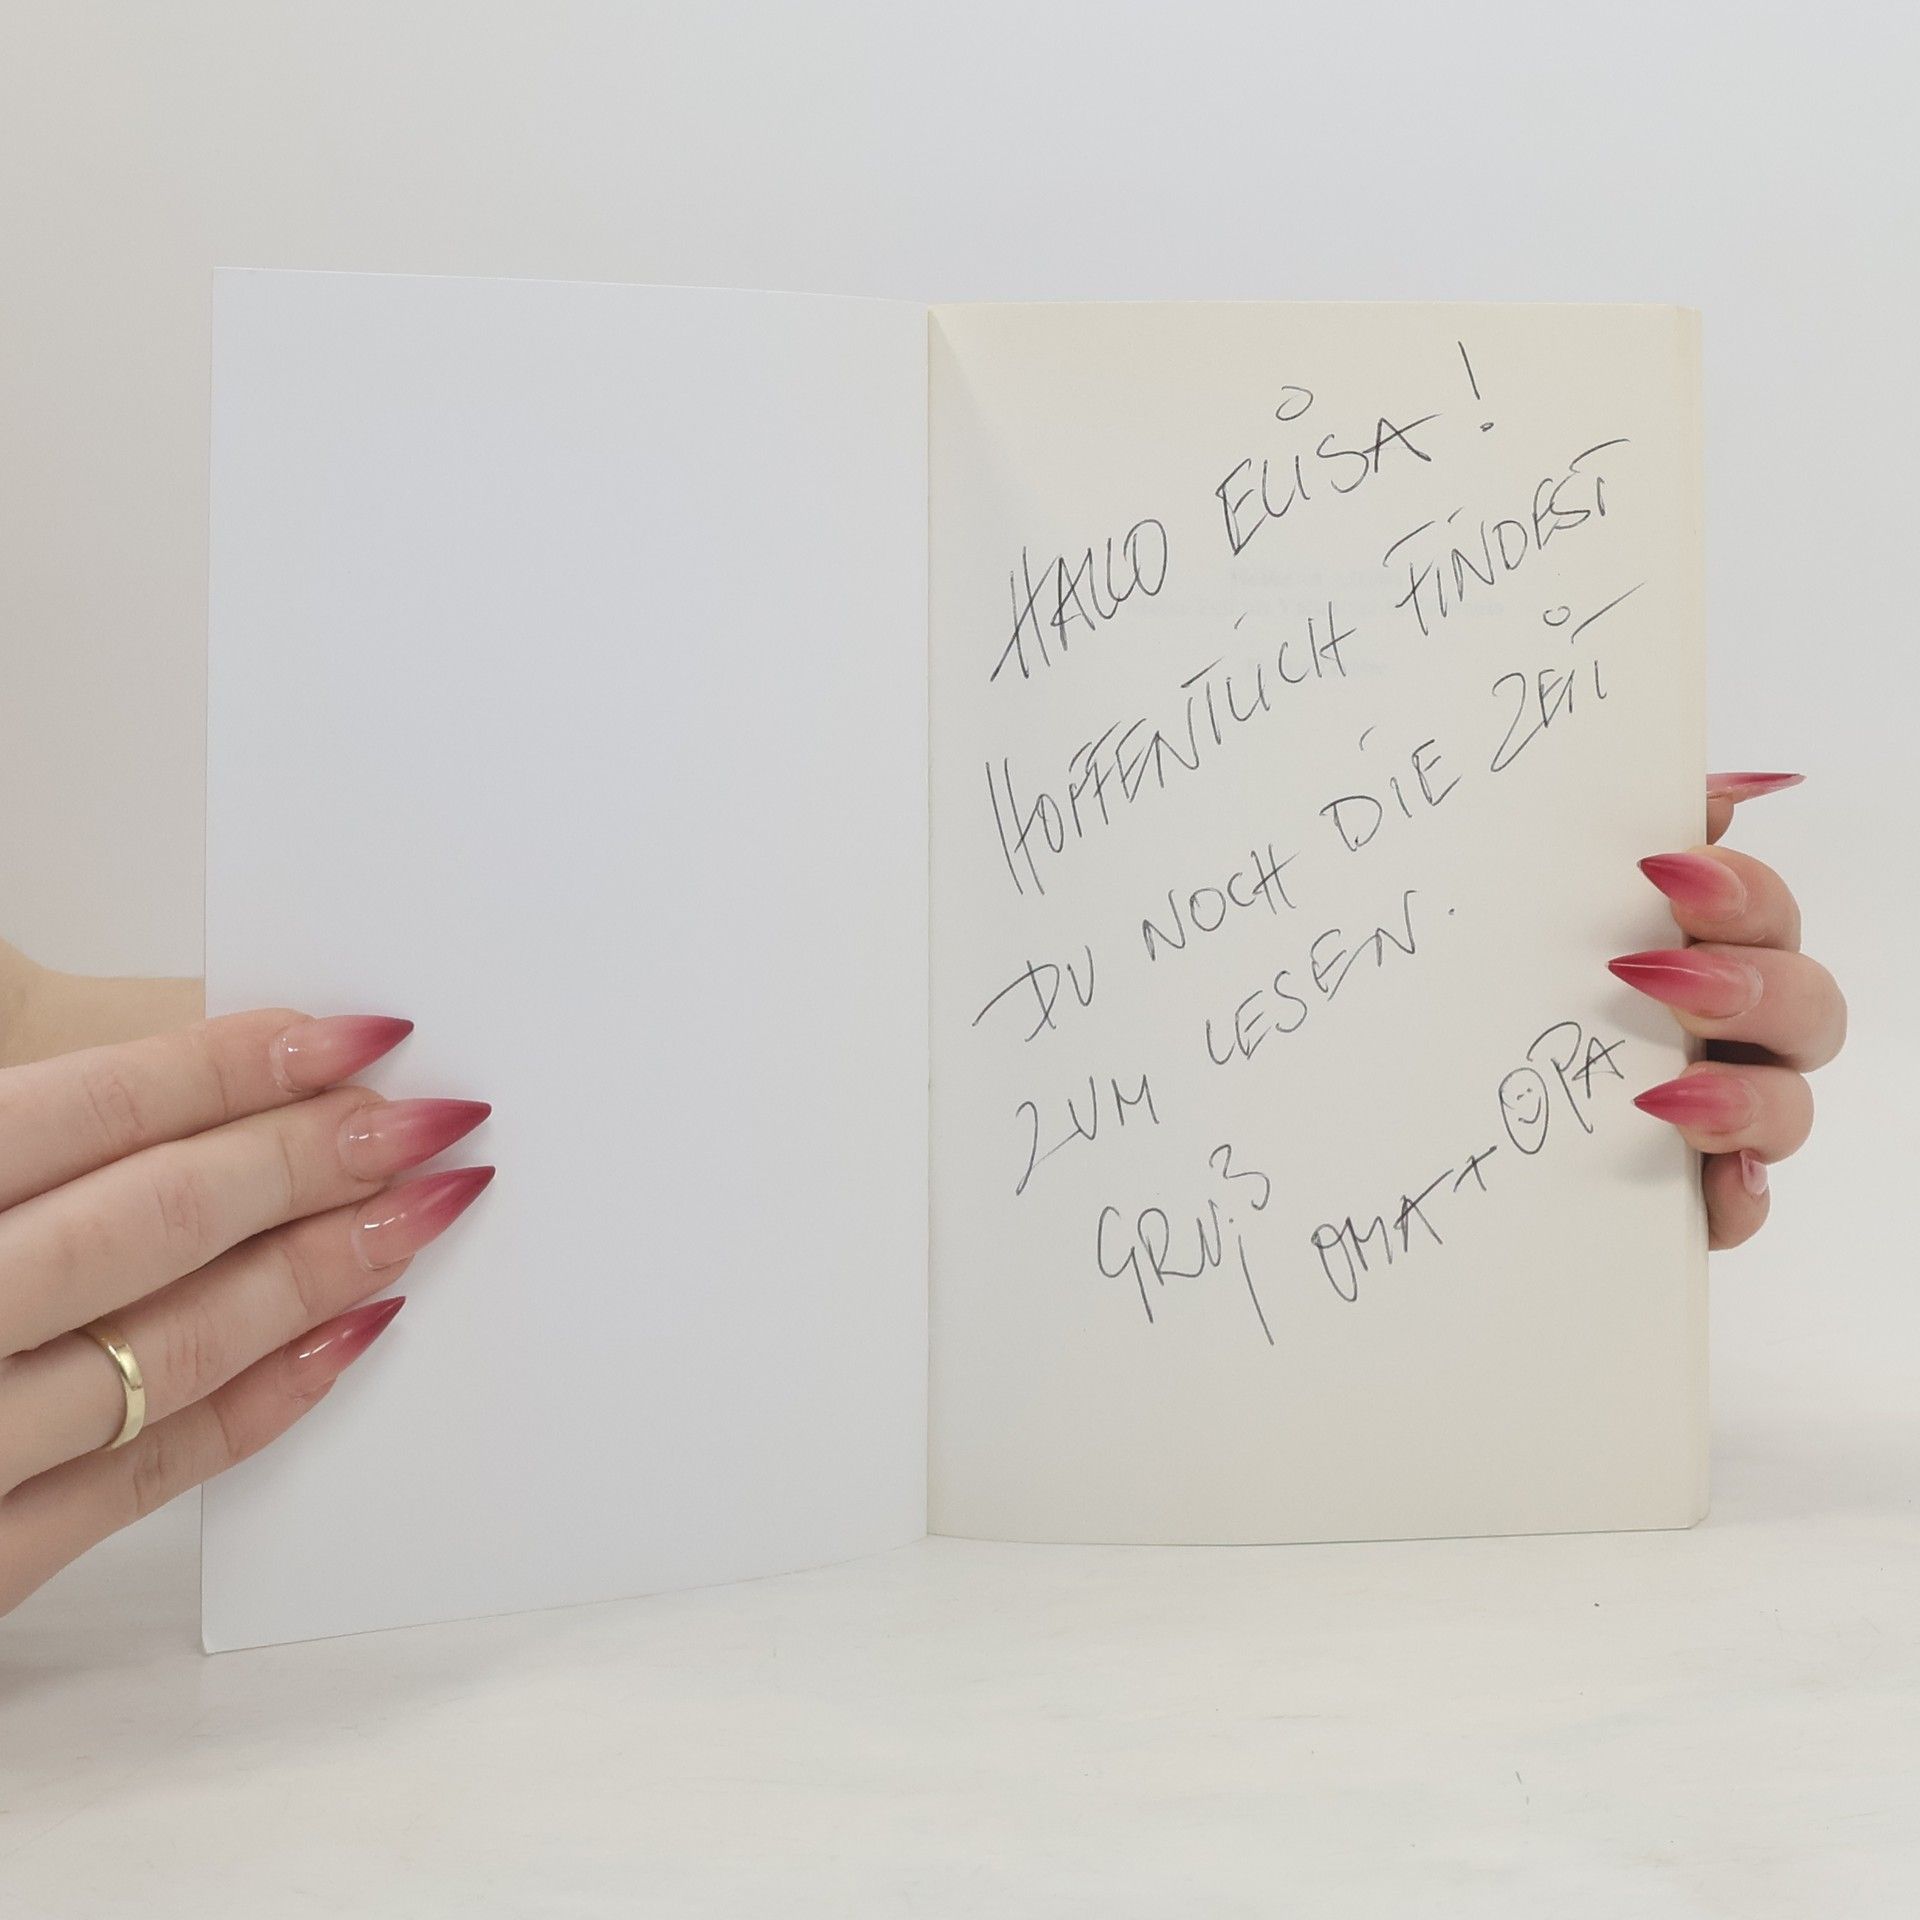 HALLO ELISA!
HOFFENTLICH FINDEST
DU NOCH DIE ZEIT
ZUM LESEN.
GRUß OMA + OPA